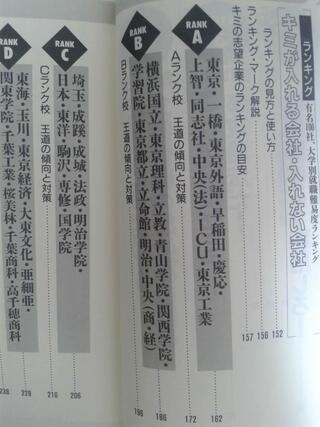 ランキング 有名100社、大学別就職難易度ランキング
キミが入れる会社・入れない会社
ランキングの見方と使い方 152
ランキング・マーク解説 156
キミの志望企業のランキングの目安 157
RANK A
東京・一橋・東京外語・早稲田・慶応・
上智・同志社・中央(法)・ICU・東京工業 162
Aランク校 王道の傾向と対策 172
RANK B
横浜国立・東京理科・立教・青山学院・関西学院・
学習院・東京都立・立命館・明治・中央(商・経) 186
Bランク校 王道の傾向と対策 196
RANK C
埼玉・成蹊・成城・法政・明治学院・
日本・東洋・駒沢・専修・国学院 206
Cランク校 王道の傾向と対策 216
RANK D
東海・玉川・東京経済・大東文化・亜細亜・
関東学院・千葉工業・桜美林・千葉商科・高千穂商科 228
238